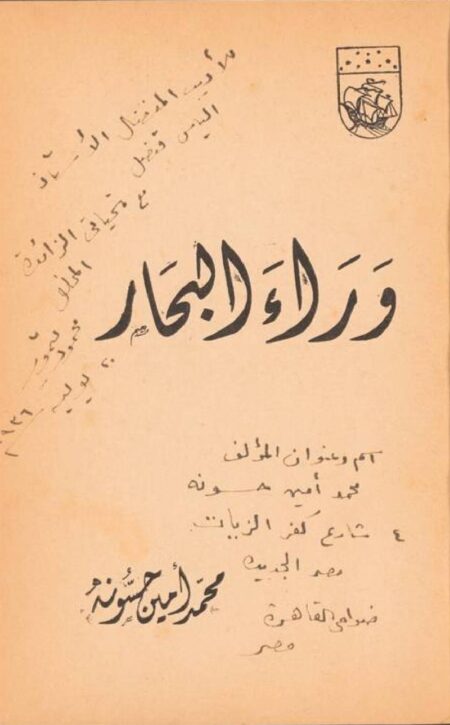 للأديب المفضال الأستاذ
الياس قنصل
مع تحياتي الزائدة
المخلص
محمود تيمور
٢٠ يوليه ١٩٣٦
وَرَاءَ البحَار
اسم وعنوان المؤلف
محمد أمين حسونه
٤ شارع كفر الزيات
مصر الجديده
ضواحي القاهرة
مصر
محمّد أمين حسُّونه